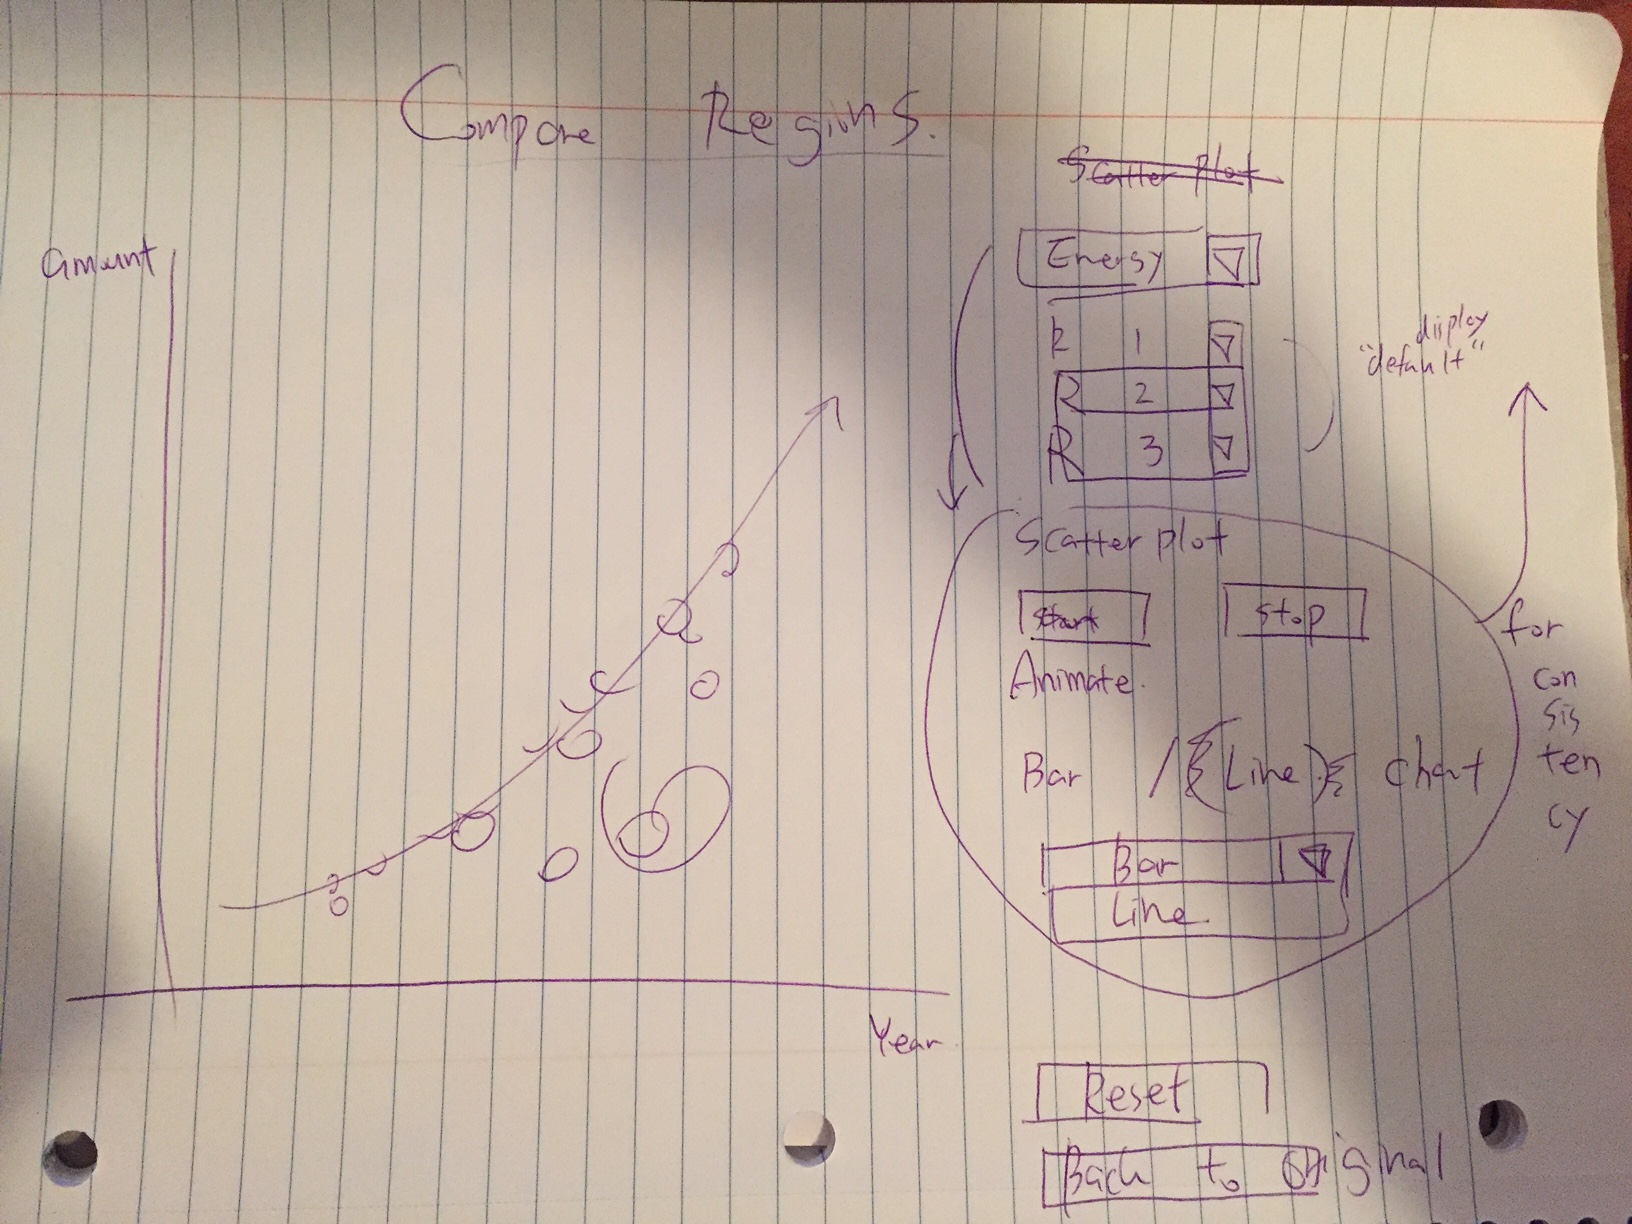 Compare Regions.
Scatter plot
amount
Energy
R 1
R 2
R 3
display
"default"
Scatter plot
Start
Stop
Animate.
Bar / (Line) Chart
Bar
Line
for
con
sis
ten
cy
Year
Reset
Back to Original